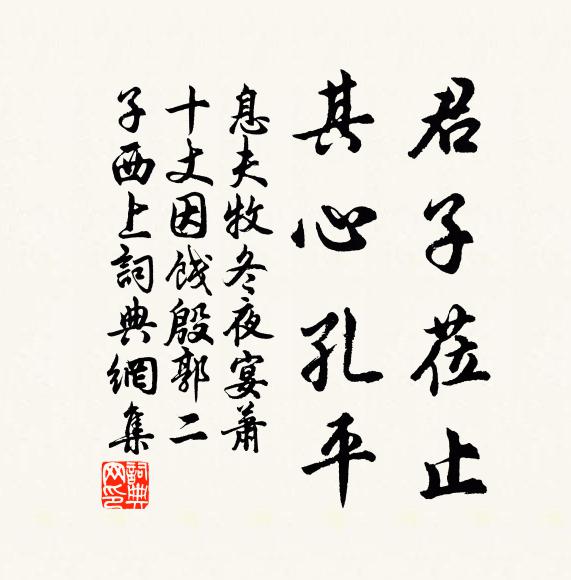 君子莅止
其心孔平
息夫牧冬夜宴蕭
十丈因餞殷郭二
子西上詞典網集
詞典網印